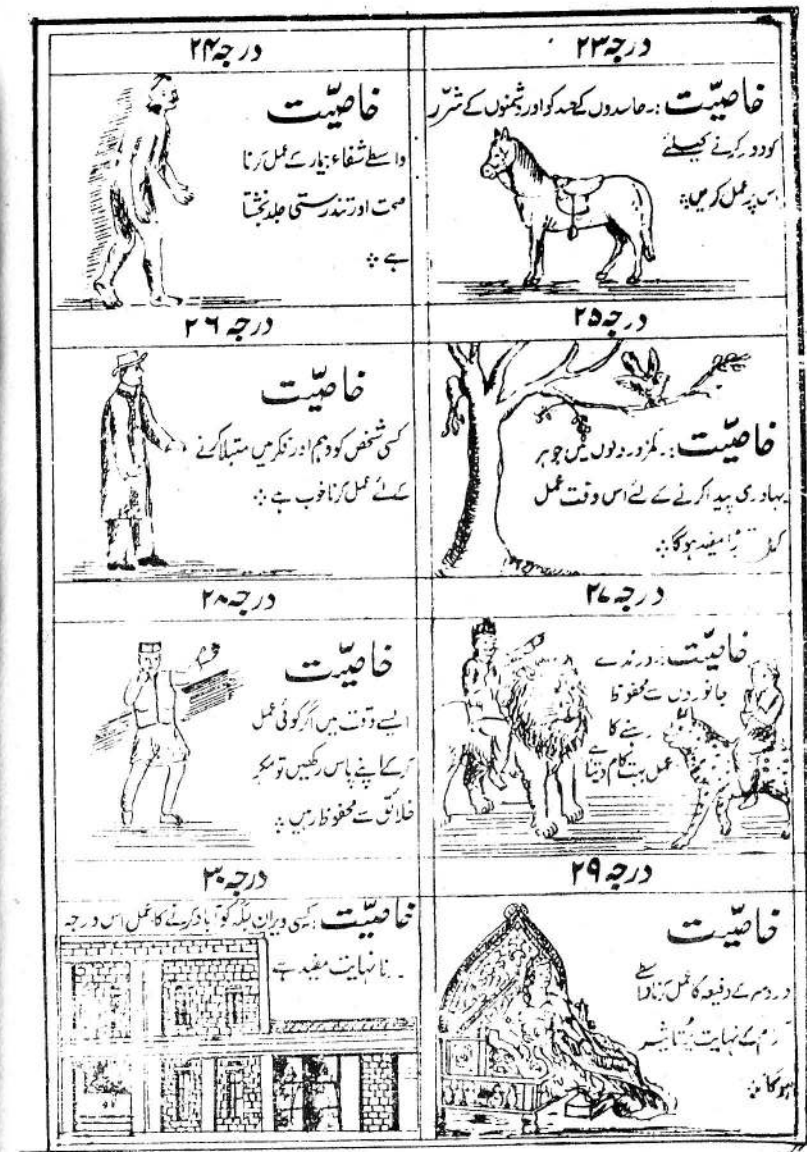 درجہ ۲۳
خاصیّت :۔ حاسدوں کے حسد کو اور دشمنوں کے شرّر
کو دور کرنے کیلئے
اس پر عمل کریں ⁘
درجہ ۲۴
خاصیّت
واسطے شفاء بیمار کے عمل کرنا
صحت اور تندرستی جلد بخشتا
ہے ⁘
درجہ ۲۵
خاصیّت :۔ کمزور دلوں میں جوہر
بہادری پیدا کرنے کے لئے اس وقت عمل
مفید ہوگا ⁘
درجہ ۲۶
خاصیّت
کسی شخص کو وہم اور فکر میں مبتلا کرنے
کے لئے عمل کرنا خوب ہے ⁘
درجہ ۲۷
خاصیّت :۔ درندے
جانوروں سے محفوظ
رہنے کا
عمل بہت کام دیتا ہے
درجہ ۲۸
خاصیّت
ایسے وقت میں اگر کوئی عمل
کرکے اپنے پاس رکھیں تو مکر
خلائق سے محفوظ رہیں ⁘
درجہ ۲۹
خاصیّت
درد سر کے دفیعہ کا عمل کرنا واسطے
کے نہایت پُر تاثیر
ہوگا ⁘
درجہ ۳۰
خاصیّت :۔ کسی ویران جگہ کو آباد کرنے کا عمل اس درجہ
نہایت مفید ہے